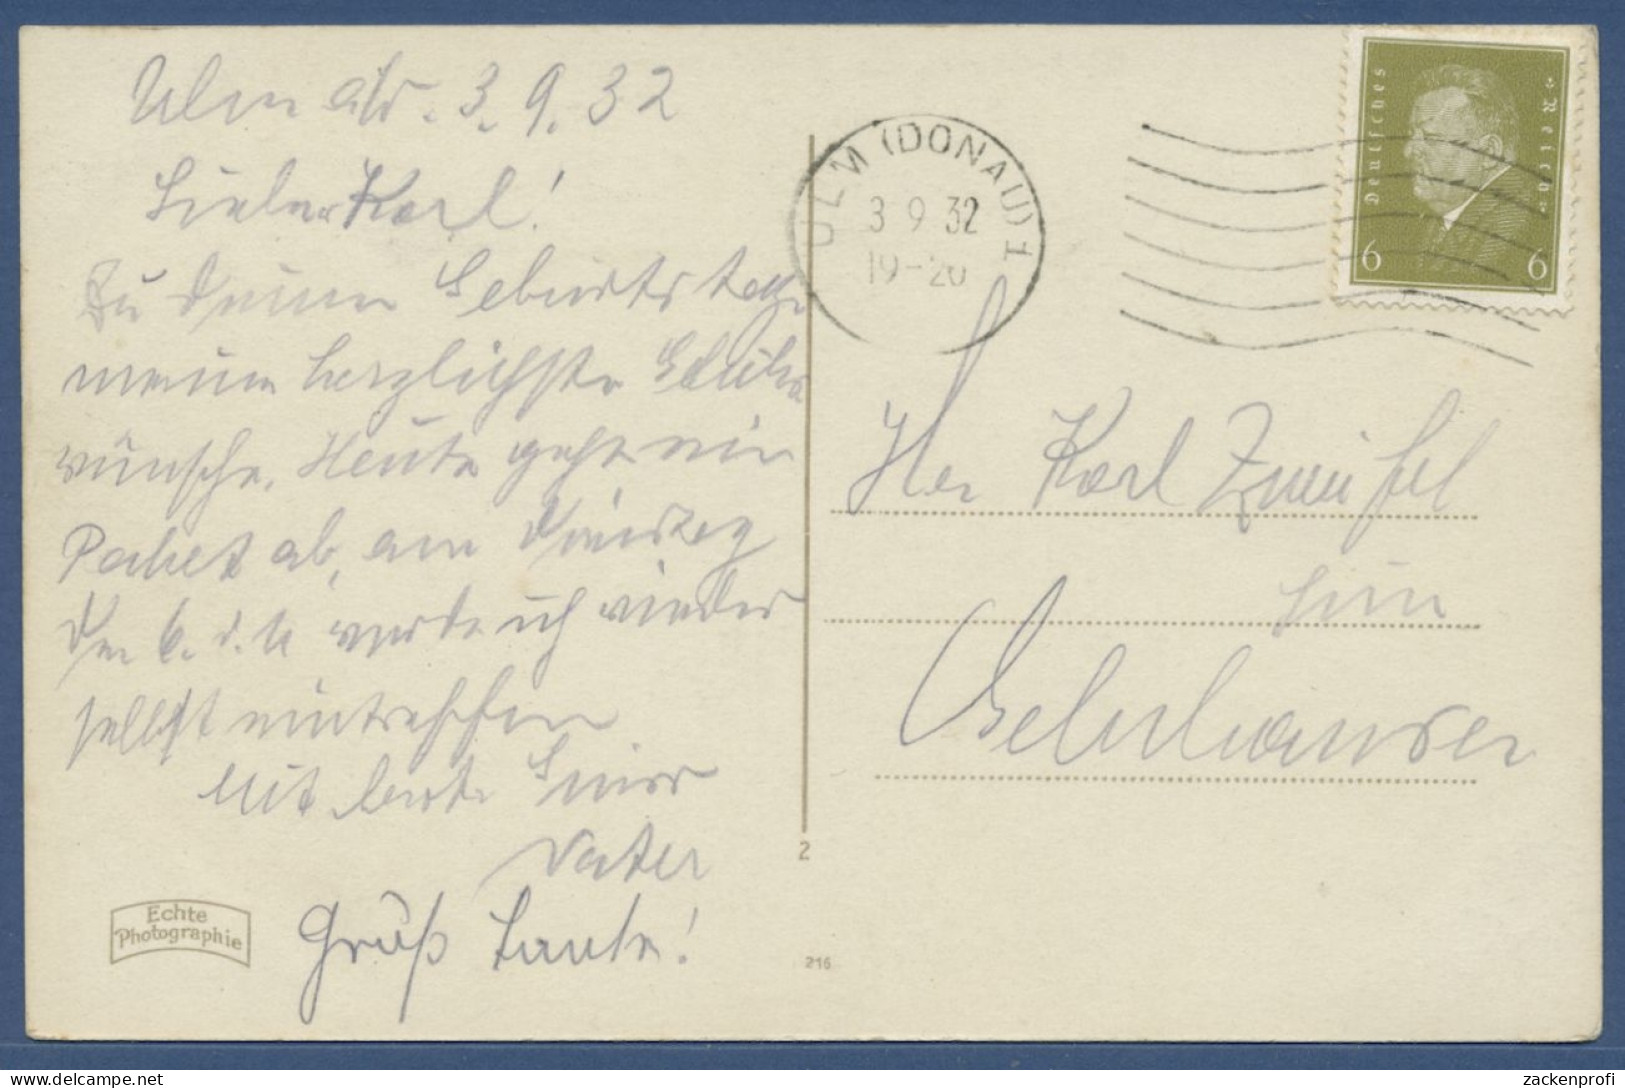 Ulm a/D. 3.9.32
Lieber Karl!
Zu deinem Geburtstage
meine herzlichste Glück
wünsche. Heute geht ein
Paket ab, am Dienstag
den 6. d. M werde ich wieder
selbst eintreffen
Mit besten Gruss
Vater
Gruß Tante!
Echte
Photographie
2
216
ULM (DONAU) 1
3 9 32
19-20
Deutsches Reich
6 6
Her Karl Zweifel
Gelnhausen
zackenprofi